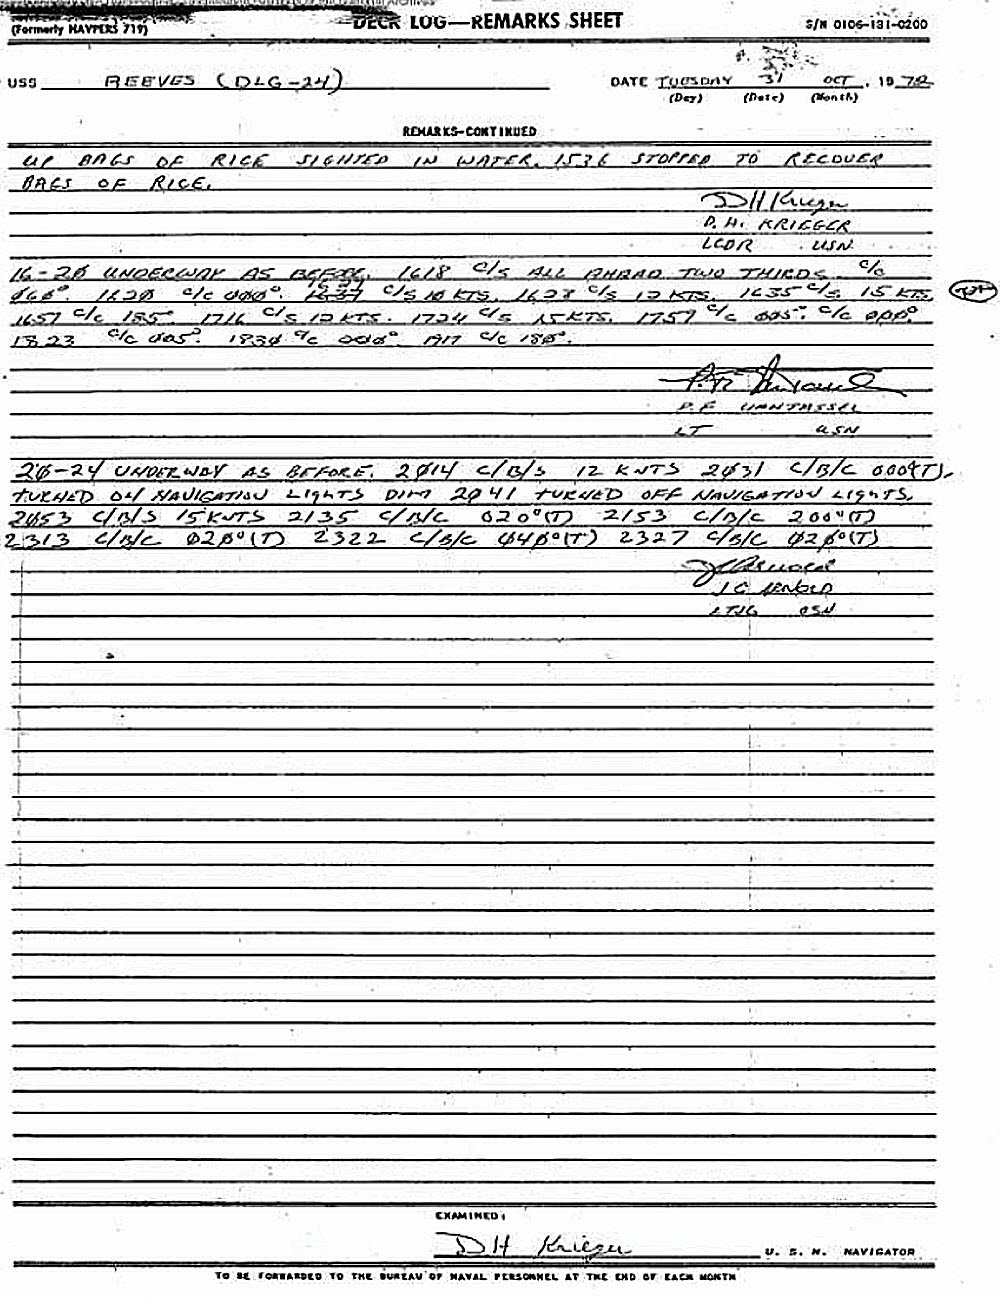 (Formerly NAVPERS 719)
DECK LOG—REMARKS SHEET
S/N 0106-131-0200
USS REEVES (DLG-24)
DATE TUESDAY 31 OCT, 1972
(Day) (Date) (Month)
REMARKS-CONTINUED
UP BAGS OF RICE SIGHTED IN WATER. 1536 STOPPED TO RECOVER
BAGS OF RICE.
DH Krieger
D. H. KRIEGER
LCDR USN
16-20 UNDERWAY AS BEFORE. 1618 C/S ALL AHEAD TWO THIRDS. C/C
060°. 1620 C/C 000°. C/S 10 KTS. 1628 C/S 12 KTS. 1635 C/S 15 KTS.
1657 C/C 185°. 1716 C/S 12 KTS. 1724 C/S 15 KTS. 1757 C/C 005°. C/C 000°
1823 C/C 005°. 1830 C/C 000°. 1917 C/C 180°.
P.F. VANTASSEL
LT USN
20-24 UNDERWAY AS BEFORE. 2014 C/B/S 12 KNTS 2031 C/B/C 000°(T),
TURNED ON NAVIGATION LIGHTS DIM 2041 TURNED OFF NAVIGATION LIGHTS,
2053 C/B/S 15 KNTS 2135 C/B/C 020°(T) 2153 C/B/C 200°(T)
2313 C/B/C 020°(T) 2322 C/B/C 040°(T) 2327 C/B/C 020°(T)
J C ARNOLD
LTJG USN
EXAMINED:
DH Krieger U. S. N. NAVIGATOR
TO BE FORWARDED TO THE BUREAU OF NAVAL PERSONNEL AT THE END OF EACH MONTH